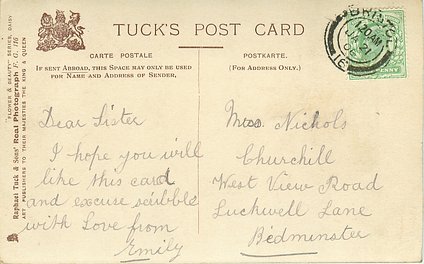 TUCK'S POST CARD
CARTE POSTALE
IF SENT ABROAD, THIS SPACE MAY ONLY BE USED
FOR NAME AND ADDRESS OF SENDER.
POSTKARTE.
(FOR ADDRESS ONLY.)
BRISTOL
12.0AM
Raphael Tuck & Sons' Real Photograph P.F.G. 116
"FLOWER & BEAUTY" SERIES, DAISY
ART PUBLISHERS TO THEIR MAJESTIES THE KING & QUEEN
Dear Sister
I hope you will
like this card
and excuse scribble
with Love from
Emily
Miss Nichols
Churchill
West View Road
Luckwell Lane
Bedminster